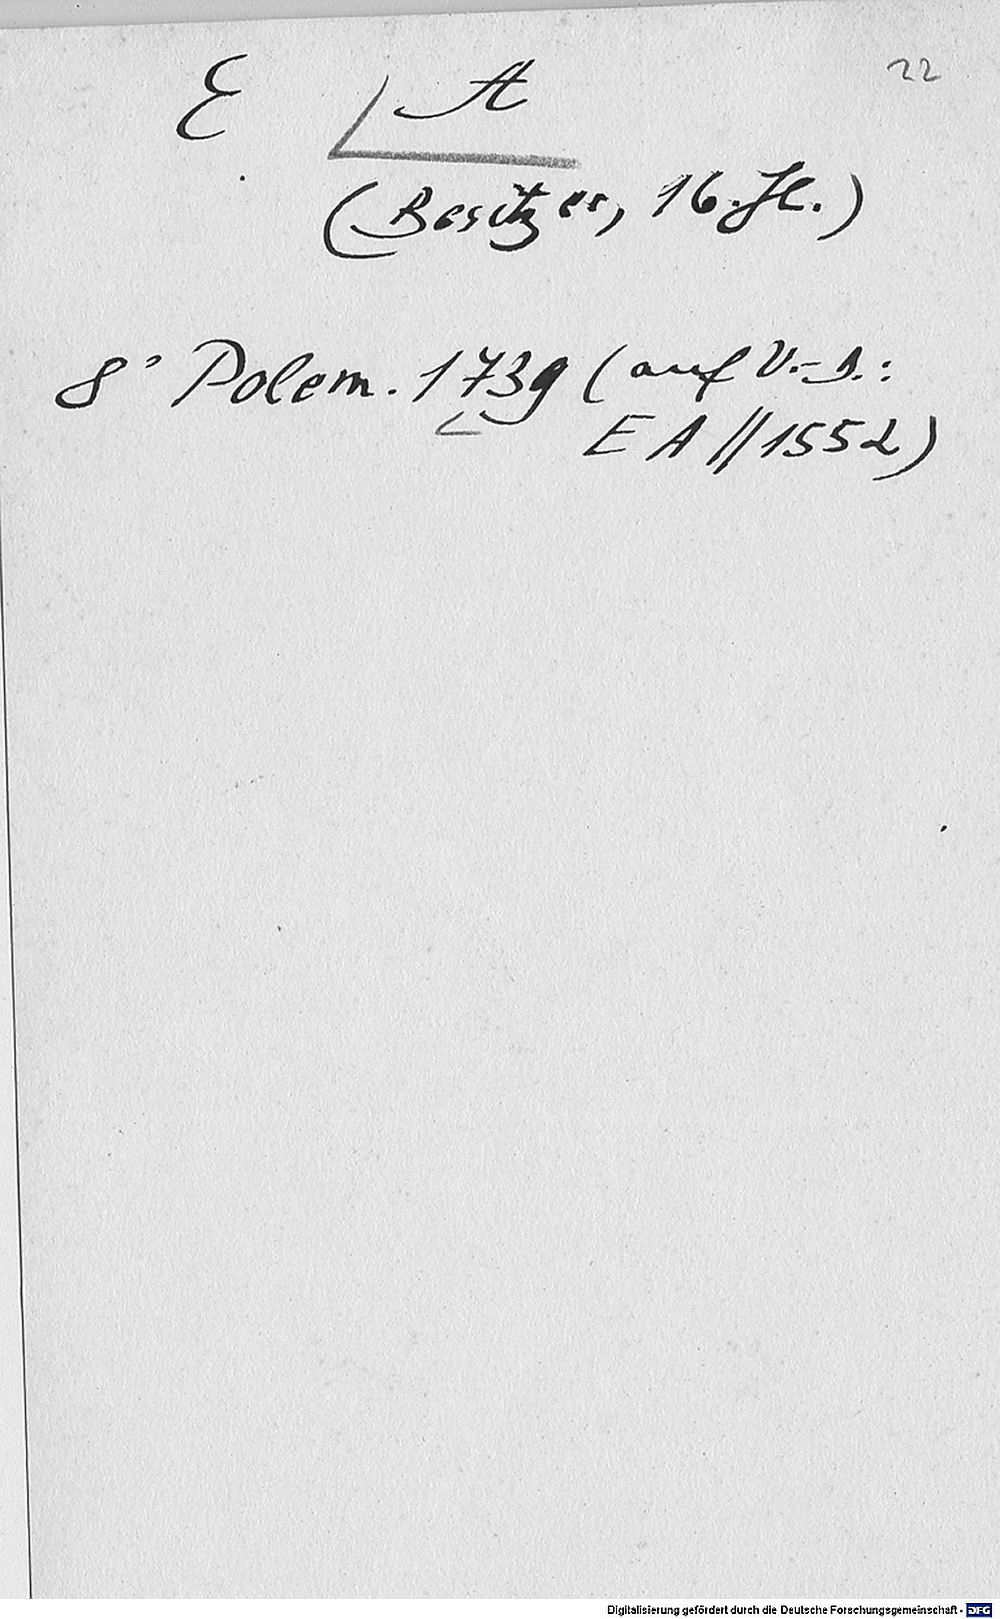 22
E A
(Besitzer, 16. Jh.)
8° Polem. 173g (auf V.-D.:
E A // 1552)
Digitalisierung gefördert durch die Deutsche Forschungsgemeinschaft - DFG